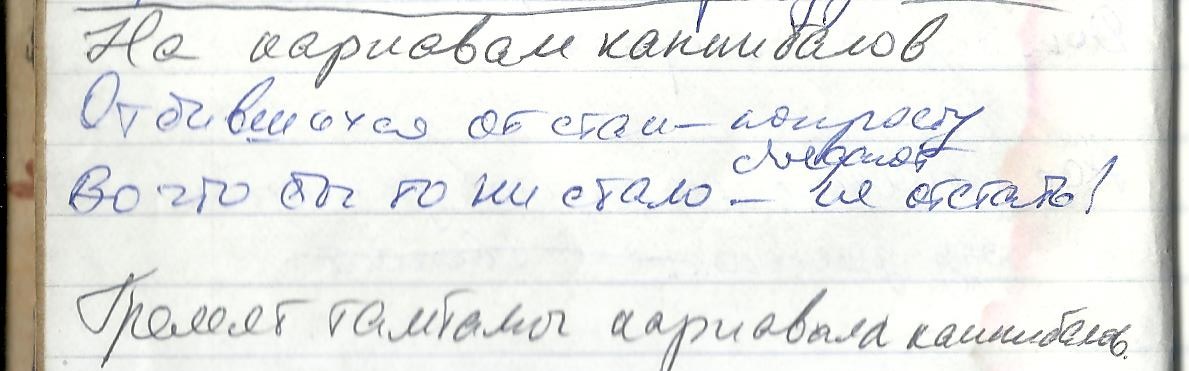 На карнавал каннибалов
Отбившихся от стаи – попросту
съедают
Во что бы то ни стало – не отстать!
Гремят тамтамы карнавала каннибалов.